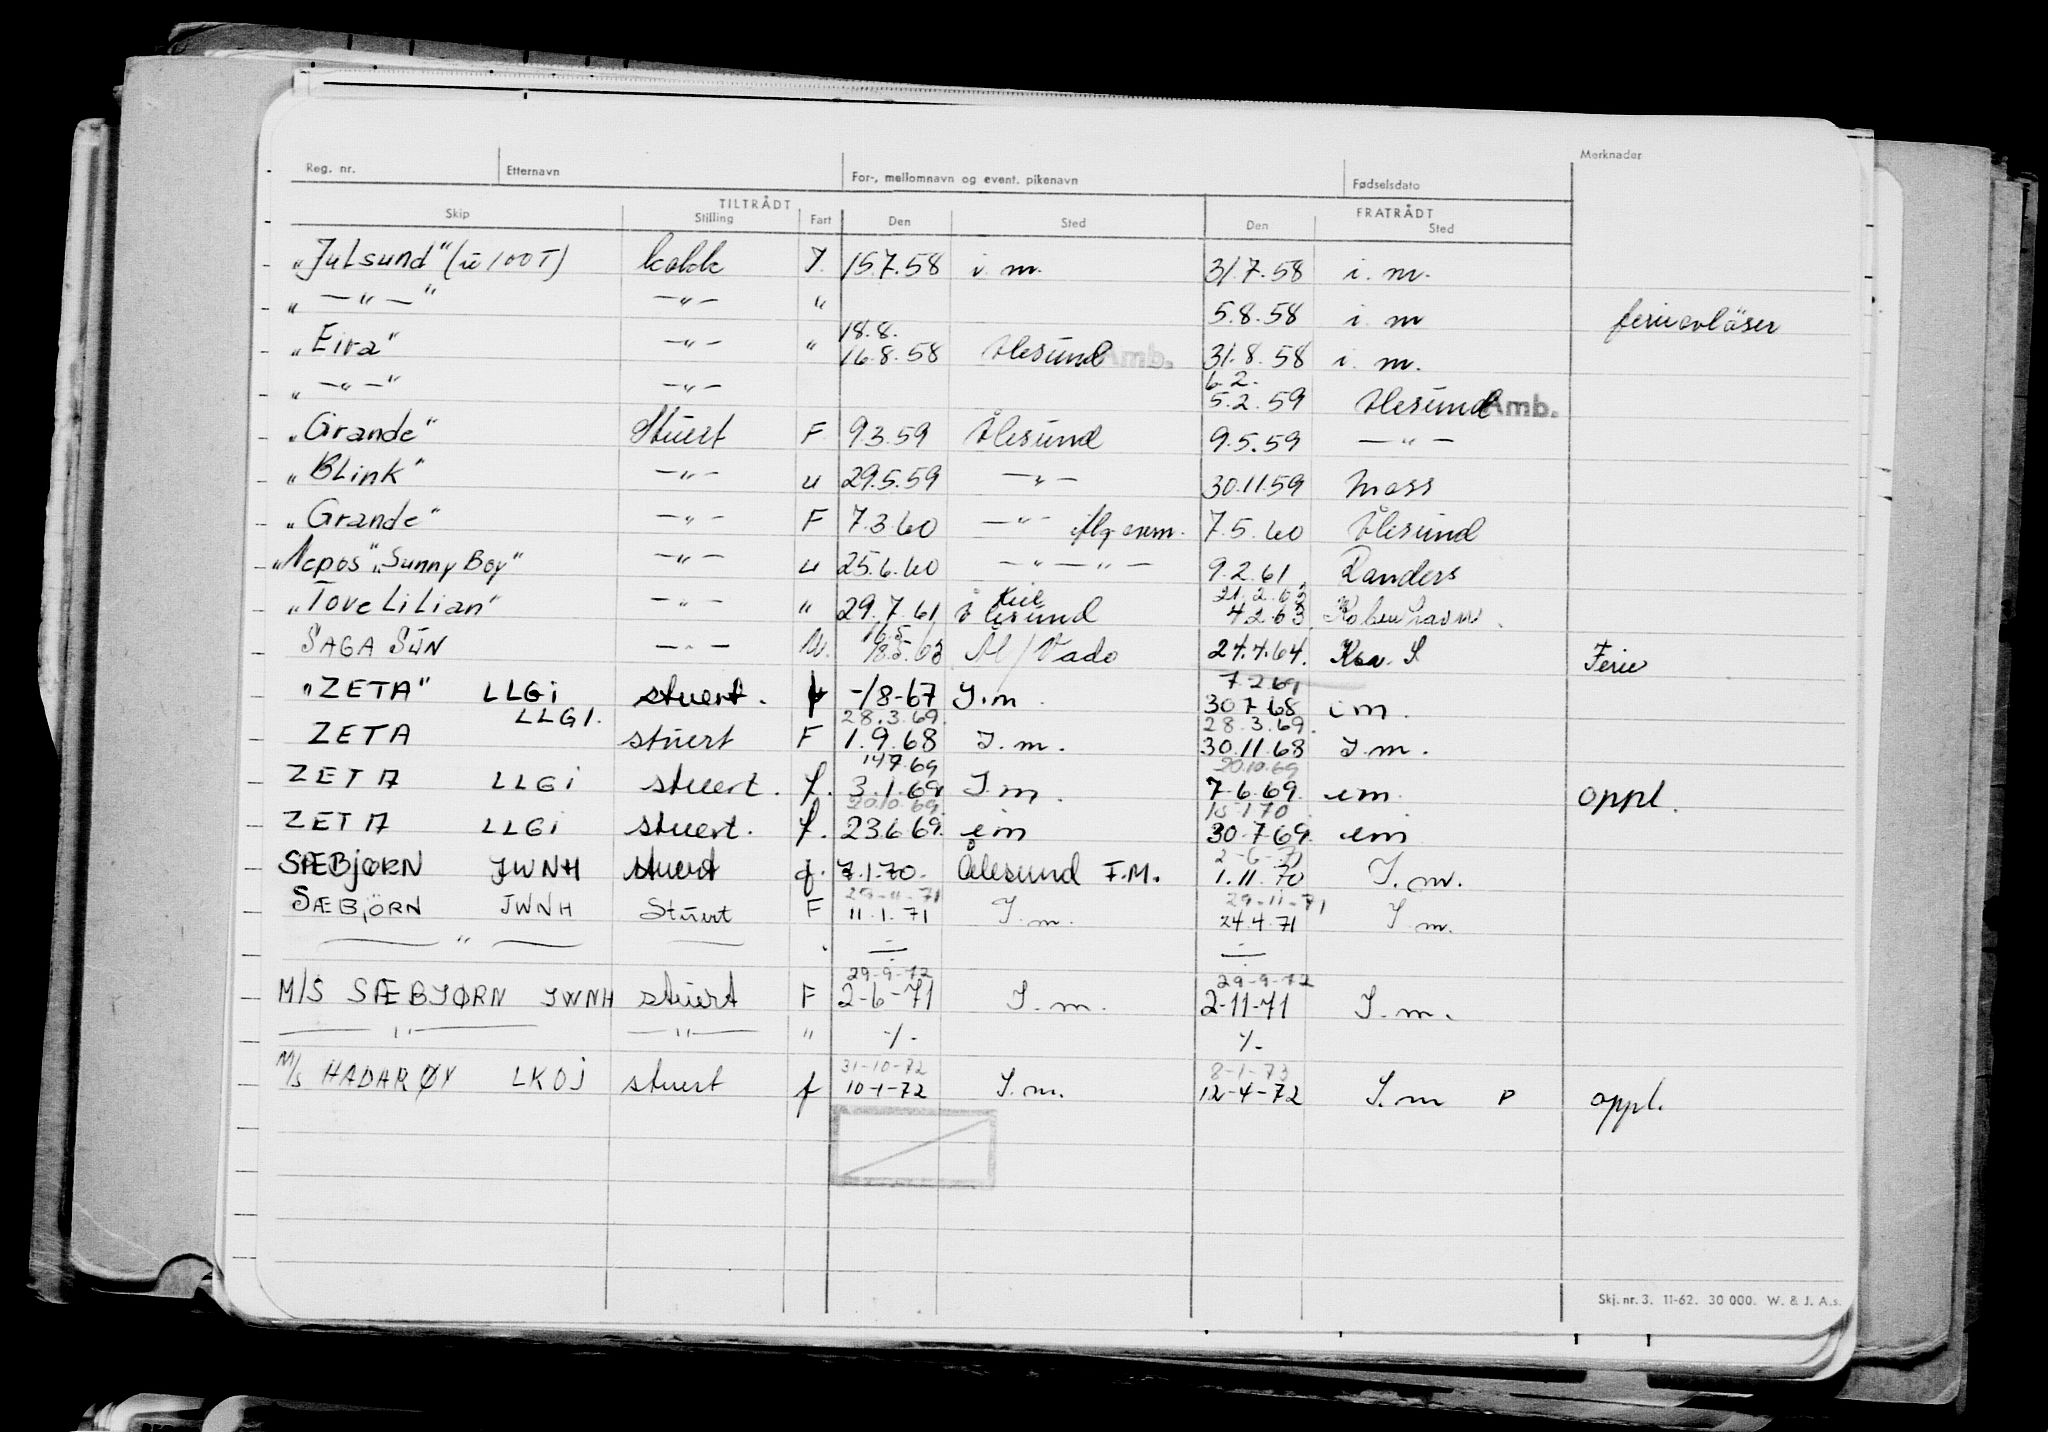 Reg. nr. Etternavn For-, mellomnavn og event. pikenavn Fødselsdato Merknader
TILTRÅDT FRATRÅDT
Skip Stilling Fart Den Sted Den Sted
„Julsund" (u 100 T) kokk 15.7.58 i. m. 31.7.58 i. m.
„ — „ — " — „ — " 5.8.58 i. m ferieavløser
18.8.
„Eira" — „ — " 16.8.58 Ålesund Amb. 31.8.58 i. m.
6.2.
„ — „ — " — „ — 5.2.59 Ålesund Amb.
„Grande" Stuert F 9.3.59 Ålesund 9.5.59 — „ —
„Blink" — „ — u 29.5.59 — „ — 30.11.59 Moss
„Grande" — „ — F 7.3.60 — „ — 7.5.60 Ålesund
"Sunny Boy" — „ — u 25.6.60 — „ — „ — 9.2.61 Randers
Kiel 21.2.63
„Tove Lilian" — „ — " 29.7.61 Ålesund 4.2.63 København
16.5
SAGA SUN — „ — U. 18.5.63 Ål/Vado 24.4.64. Ferie
7.2.69
"ZETA" LLGi stuert. -/8-67 I.m. 30 7 68 i m.
LLGI. 28.3.69. 28.3.69.
ZETA stuert F 1.9.68 I.m. 30.11.68 I.m.
14 7.69 20.10.69
ZETA LLGi stuert. f. 3.1.69 I m. 7.6.69. i m oppl.
20.10.69 15 1 70
ZETA LLGi stuert. f. 23 6 69. i m 30.7 69. i m
2-6-71
SÆBJØRN JWNH stuert f. 7.1.70. Ålesund F.M. 1.11.70 I.m.
29-11-71 29-11-71
SÆBJÖRN JWNH Stuert F 11.1.71 I.m. 24.4.71 I.m.
— „ —
29-9-72 29-9-72
M/S SÆBJØRN JWNH stuert F 2-6-71 I.m. 2-11-71 I.m.
— „ — — „ — " -/- -/-
31-10-72 8-1-73
M/s HADARØY LKOJ stuert f 10-1-72 I.m. 12-4-72 I.m P oppl.
Skj. nr. 3. 11-62. 30 000. W. & J. A.s.